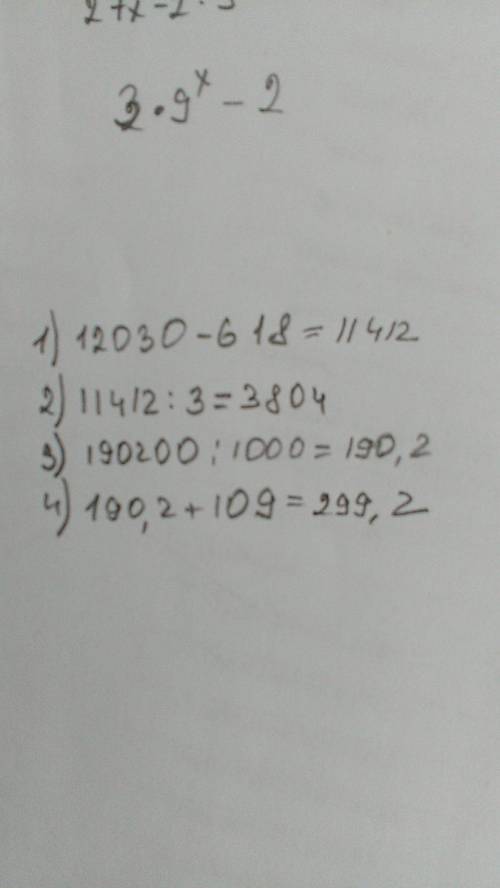 3·9ˣ - 2
1) 12030 - 618 = 11412
2) 11412 : 3 = 3804
3) 190200 : 1000 = 190,2
4) 190,2 + 109 = 299,2